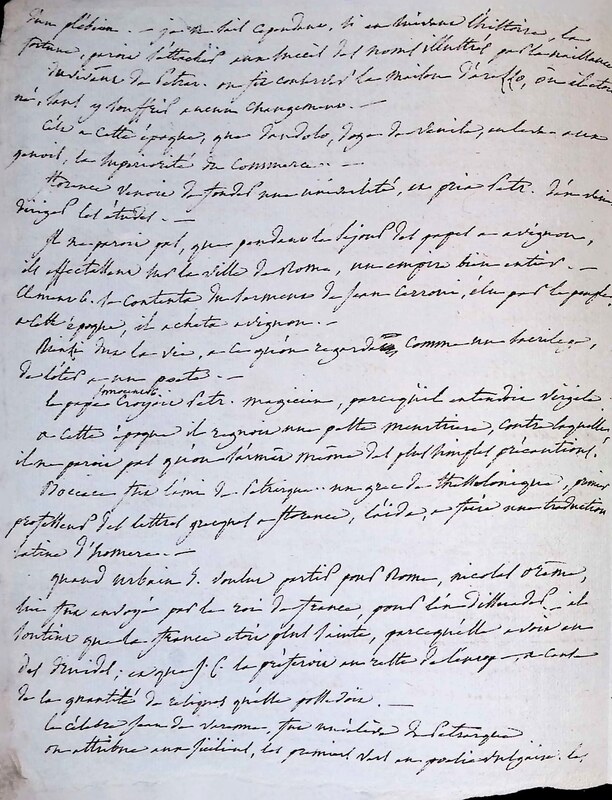 d'un plébéien. — je ne sais cependant, si en lisant l'histoire, la
fortune, paroit s'attacher aux succès des noms illustres par la naissance
du vivant de Petrar. on fit conserver la maison d'arezzo, où il etoit
né, sans y souffrir aucun changement. —
C'est a cette époque, que dandolo, doge de Venise, enleva aux
genois, la superiorité du commerce. —
florence venoit de fonder une université, on pria Petr. d'en venir
diriger les études. —
Il ne paroit pas, que pendant le sejour des papes a avignon,
ils affectassent sur la ville de Rome, un empire bien entier. —
Clement 6. se contenta du serment de Jean Cerroni, elu par le peuple
a cette époque, il acheta avignon. —
Rienzi dut la vie, a ce qu'on regardoit comme un sacrilege,
de l'oter a un poete. —
le pape innocent 6 croyoit Petr. magicien, parcequ'il entendoit Virgile.
a cette époque il regnoit une peste meurtriere, contre laquelle
il ne paroit pas qu'on s'armât même des plus simples précautions.
Boccace fut l'ami de Petrarque. un grec de thessalonique, premier
professeur des lettres grecques a florence, l'aida, a faire une traduction
latine d'homere. —
quand urbain 5. voulut partir pour Rome, nicolas orême,
lui fut envoyé par le roi de france, pour l'en dissuader. il
soutint que la france etoit plus sainte, parcequ'elle avoit eu
des druides; et que J. C. la préferoit au reste de l'europe, a cause
de la quantité de reliques qu'elle possedoit. —
le célebre jean de ravenne fut un élève de Petrarque
on attribue aux siciliens, les premiers vers en poesie vulgaire. les